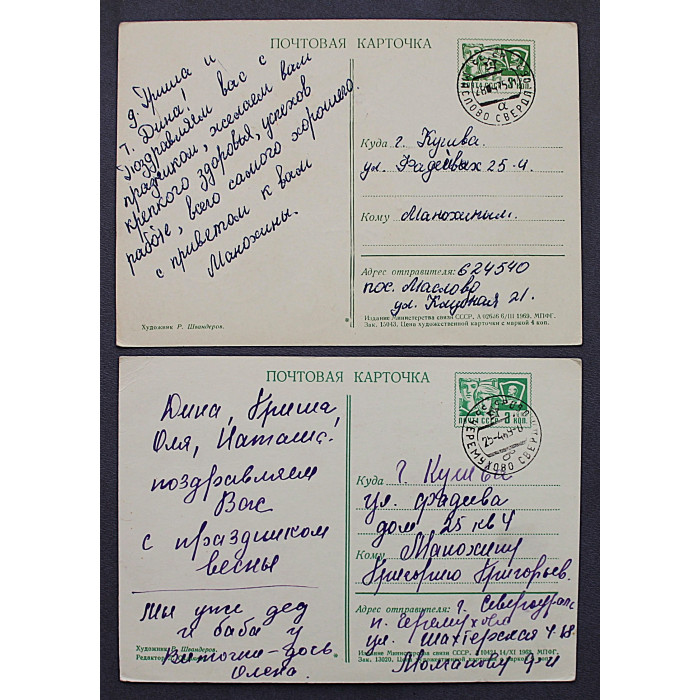 ПОЧТОВАЯ КАРТОЧКА
д. Гриша и
т. Дина!
Поздравляем вас с
праздником, желаем вам
крепкого здоровья, успехов
работе, всего самого хорошего.
с приветом к вам
Манохины.
ПОЧТА СССР
КОП.
МАСЛОВО СВЕРДЛ
Куда г. Кушва.
ул. Фадеевых 25-4.
Кому Манохиным.
Адрес отправителя: 624540
пос. Маслово
ул. 21.
Художник Р. Швандеров.
Издание Министерства связи СССР. А 02646 6/III 1969. МПФГ.
Зак. 15043. Цена художественной карточки с маркой 4 коп.
ПОЧТОВАЯ КАРТОЧКА
Дина, Гриша,
Оля, Наташа.
поздравляем
Вас
с праздником
весны
Мы уже дед
и баба у
Олена.
ПОЧТА СССР
КОП.
ЧЕРЕМУХОВО СВЕРДЛ
Куда г. Кушва
ул. Фадеева
дом 25 кв 4
Кому Манохину
Григорию Григорьев.
Адрес отправителя: г. Североуральс
п. Черемухово
ул. Шахтерская
Художник Р. Швандеров.
Редактор
Издание Министерства связи СССР. 14/XI 1968. МПФГ.
Зак. 13020. Цена художественной карточки с маркой 4 коп.